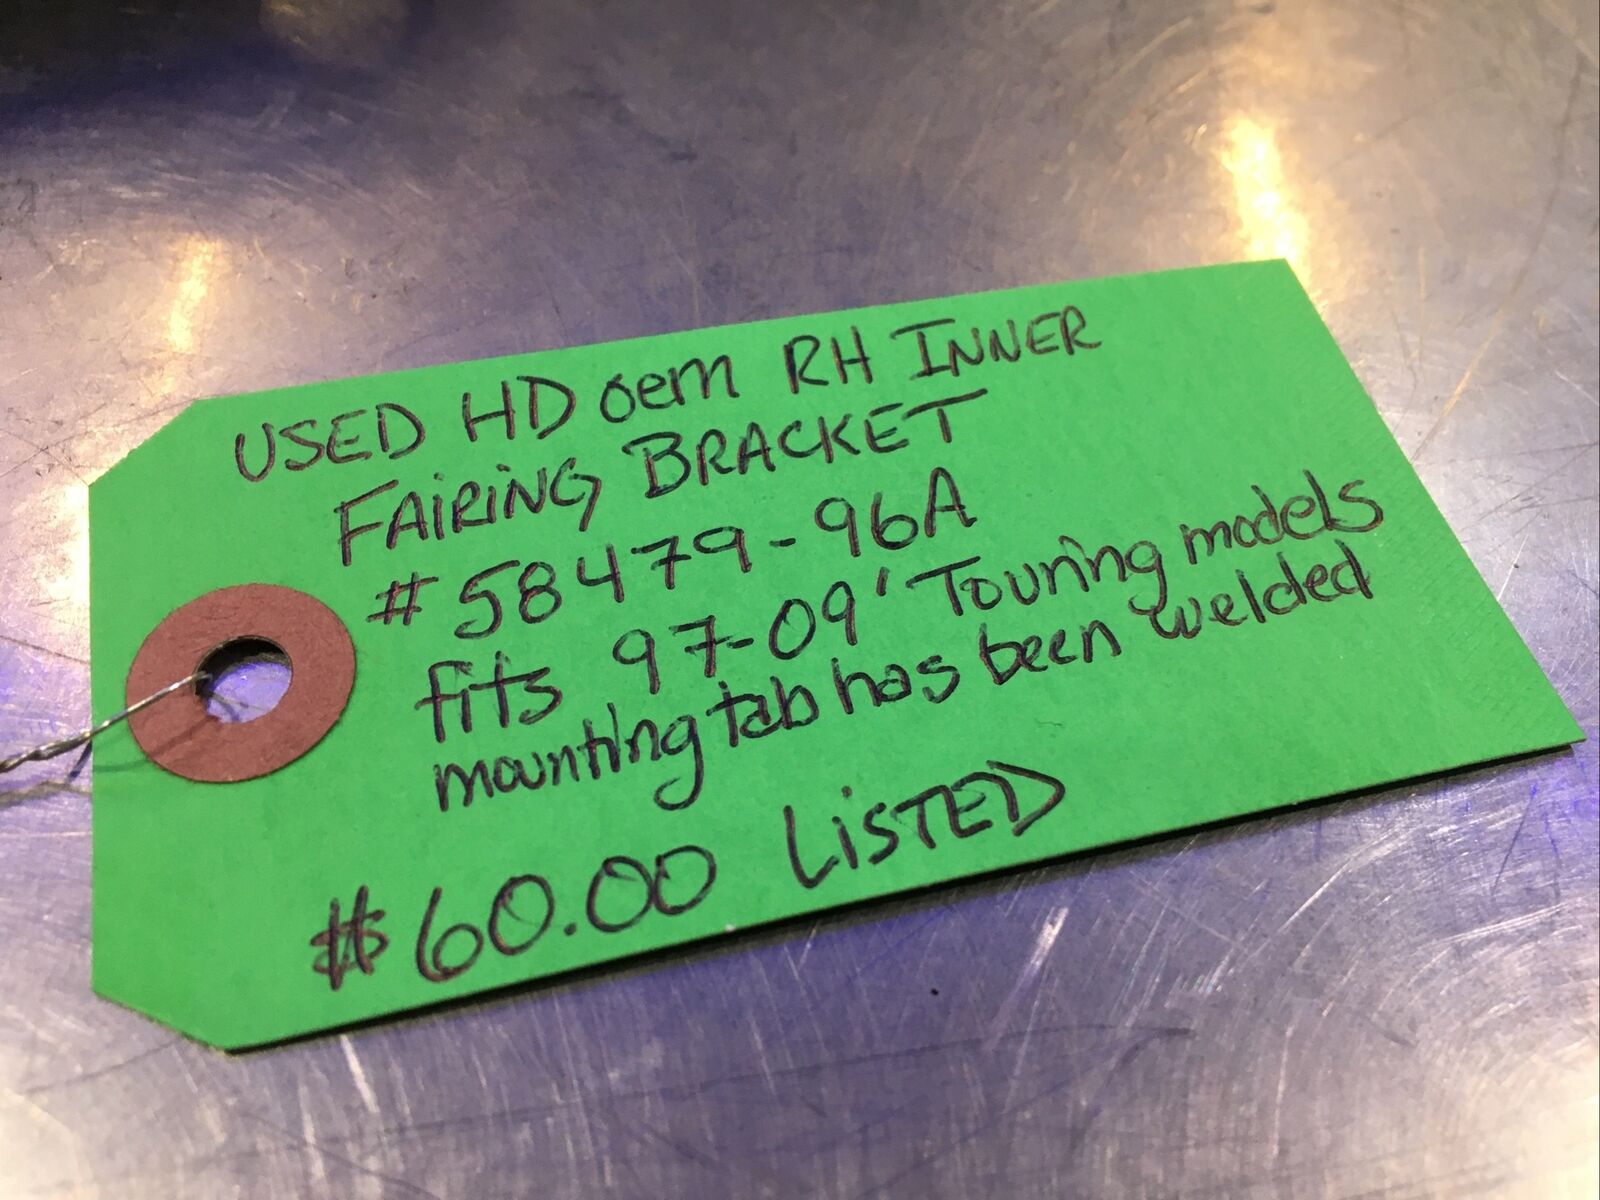 USED HD oem RH INNER
FAIRING BRACKET
#58479-96A
fits 97-09' Touring models
mounting tab has been welded
$60.00 LiSTED